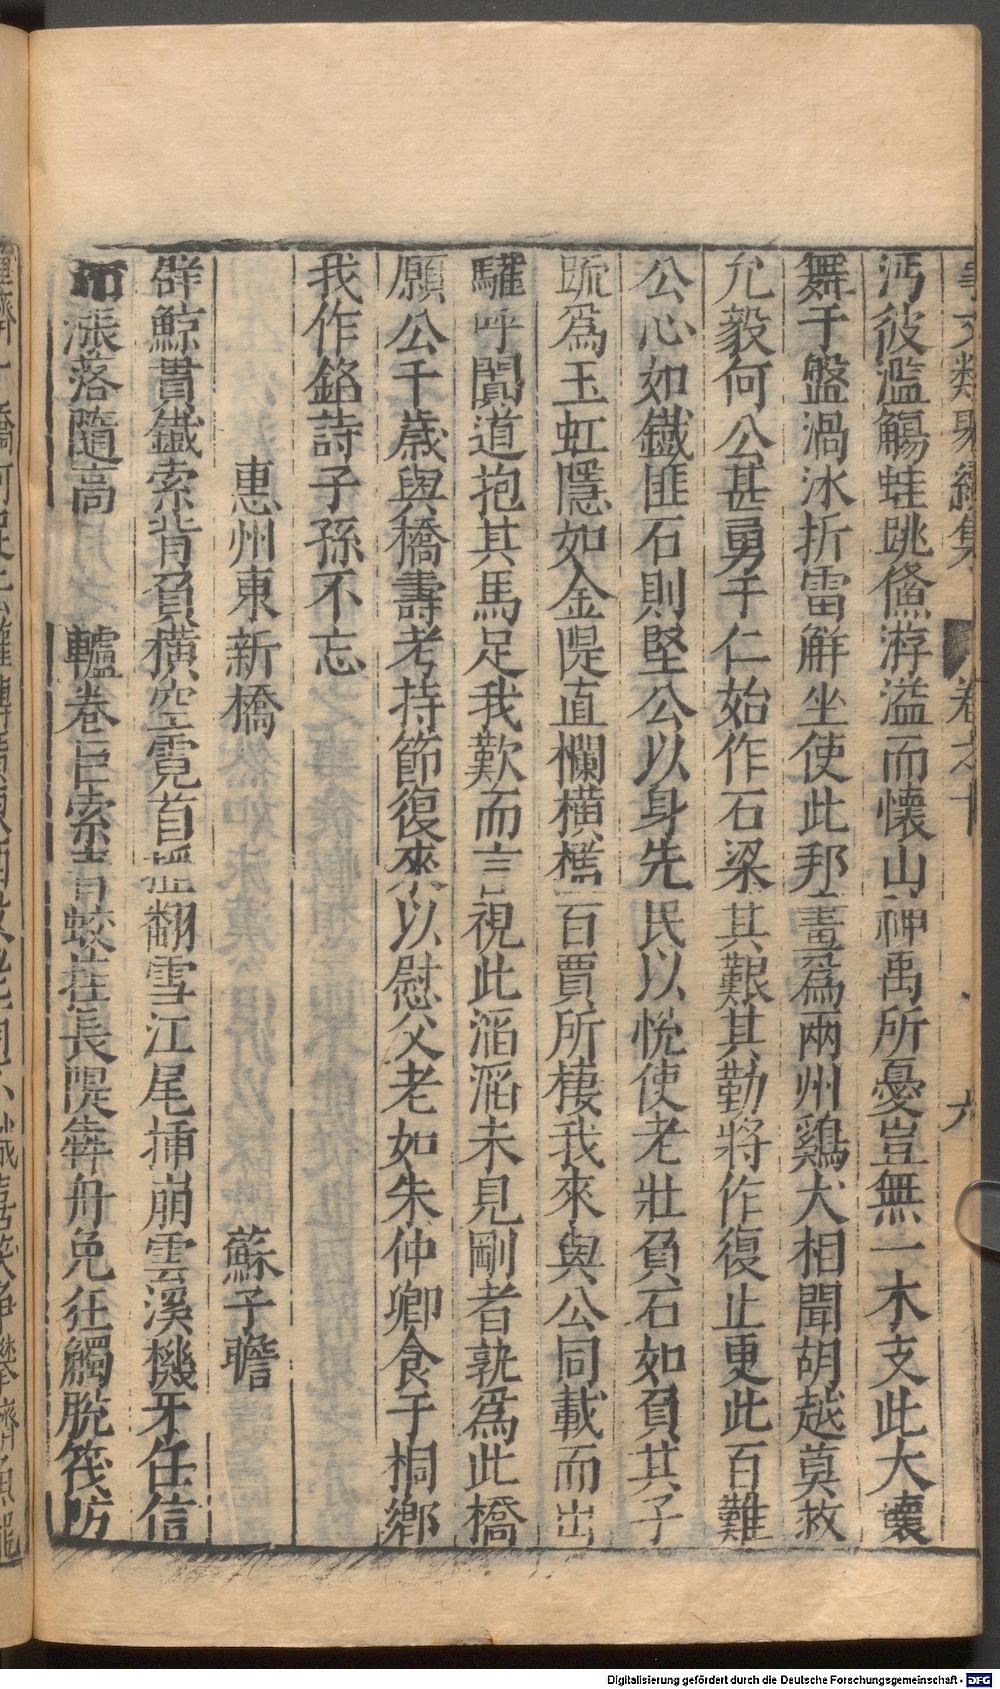 事文類聚續集 卷之十 六
沔彼濫觴蛙跳鯈游溢而懷山神禹所憂豈無一木支此大壞
舞于盤渦冰折雷解坐使此邦畫爲兩州鷄犬相聞胡越莫救
允毅何公甚勇于仁始作石梁其艱其勤將作復止更此百難
公心如鐵匪石則堅公以身先民以悅使老壯負石如負其子
疏爲玉虹隱如金隄直欄橫檻百賈所棲我來與公同載而出
驩呼闐道抱其馬足我歎而言視此滔滔未見剛者孰爲此橋
願公千歲與橋壽考持節復來以慰父老如朱仲卿食于桐鄉
我作銘詩子孫不忘
惠州東新橋 蘇子瞻
群鯨貫鐵索背負橫空霓首搖翻雪江尾揷崩雲溪機牙任信
漲落隨高 轤卷巨索青蛟挂長隄犇舟免狂觸脫筏防
Digitalisierung gefördert durch die Deutsche Forschungsgemeinschaft - DFG